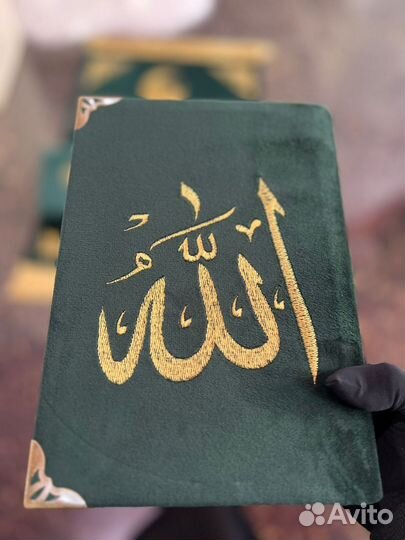 الله
Avito